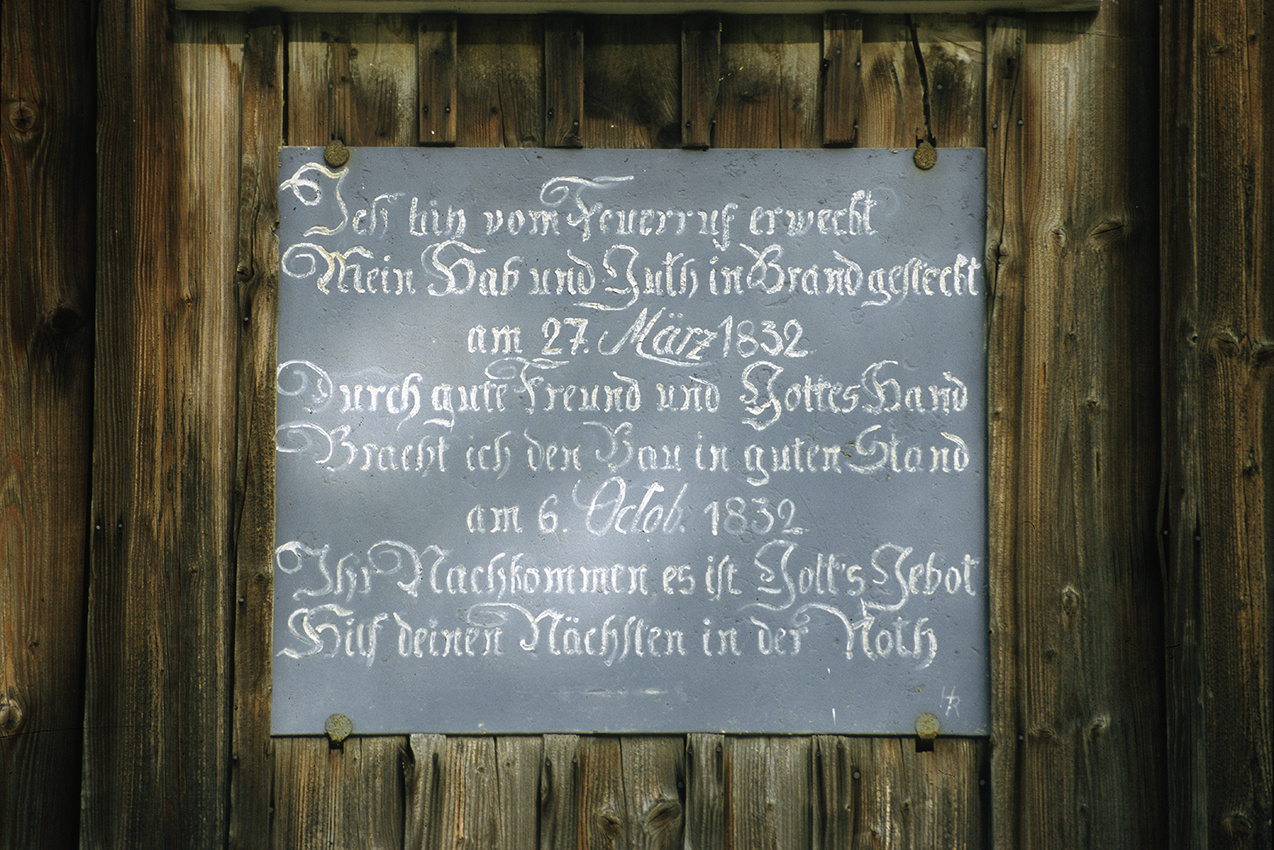 Ich bin vom Feuerruf erweckt
Mein Hab und Guth in Brand gesteckt
am 27. März 1832
Durch gute Freund und Gottes Hand
Bracht ich den Bau in guten Stand
am 6. Octob. 1832
Ihr Nachkommen es ist Gott's Gebot
Hilf deinen Nächsten in der Noth
HR